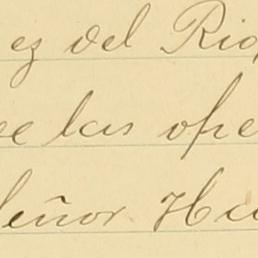 ez del Rio
ee las ope
Señor Ha